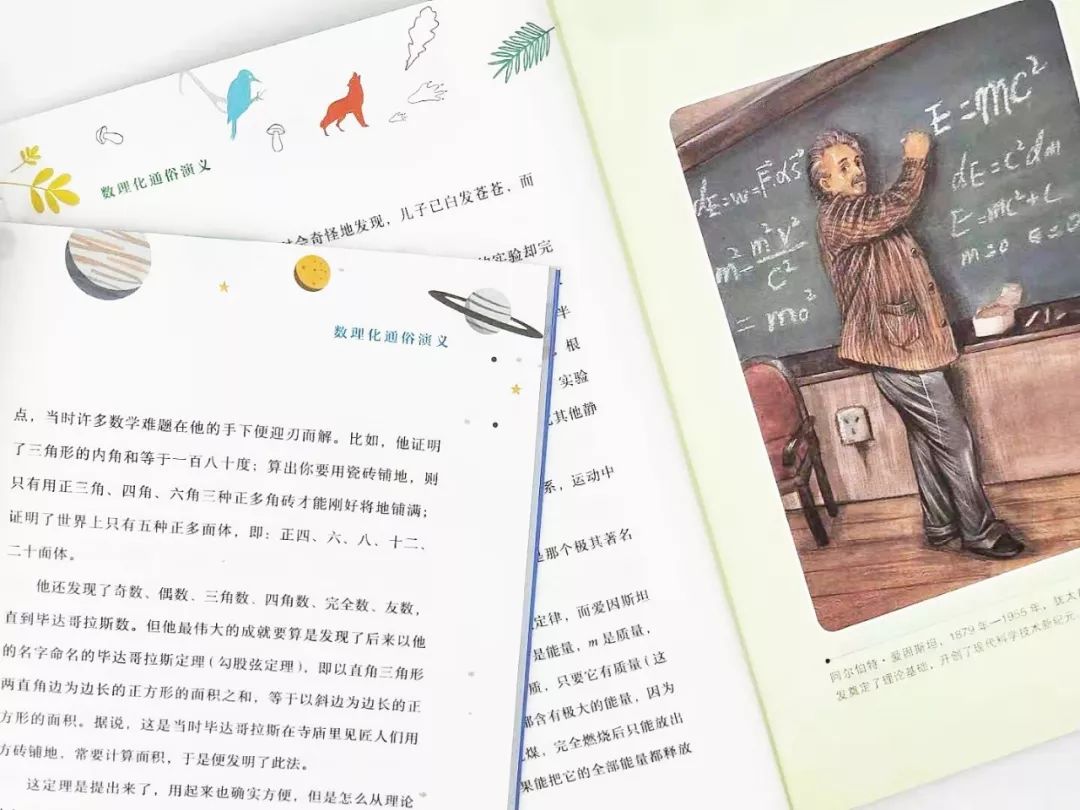 数理化通俗演义
会奇怪地发现，儿子已白发苍苍，而
实验却完
半
根
实验
其他静
系，运动中
是那个极其著名
定律，而爱因斯坦
是能量，m是质量，
质，只要它有质量（这
都含有极大的能量，因为
煤，完全燃烧后只能放出
果能把它的全部能量都释放
数理化通俗演义
点，当时许多数学难题在他的手下便迎刃而解。比如，他证明
了三角形的内角和等于一百八十度；算出你要用瓷砖铺地，则
只有用正三角、四角、六角三种正多角砖才能刚好将地铺满；
证明了世界上只有五种正多面体，即：正四、六、八、十二、
二十面体。
他还发现了奇数、偶数、三角数、四角数、完全数、友数，
直到毕达哥拉斯数。但他最伟大的成就要算是发现了后来以他
的名字命名的毕达哥拉斯定理（勾股弦定理），即以直角三角形
两直角边为边长的正方形的面积之和，等于以斜边为边长的正
方形的面积。据说，这是当时毕达哥拉斯在寺庙里见匠人们用
方砖铺地，常要计算面积，于是便发明了此法。
这定理是提出来了，用起来也确实方便，但是怎么从理论
E=mc²
dE=w=F·ds
dE=c²dm
E=mc²+C
m=0
m²-m²v²/C²
=m₀²
阿尔伯特·爱因斯坦，1879年—1955年，犹太
发奠定了理论基础，开创了现代科学技术新纪元